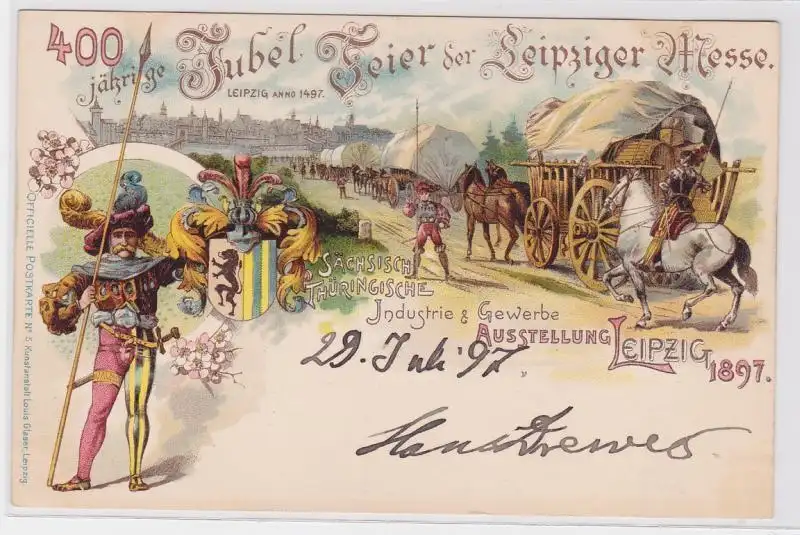 400
jährige Jubel Feier der Leipziger Messe.
LEIPZIG ANNO 1497.
SÄCHSISCH
THÜRINGISCHE
Industrie & Gewerbe
AUSSTELLUNG LEIPZIG
1897.
29. Juli 97.
Hans Drewes
OFFICIELLE POSTKARTE Nº 5. Kunstanstalt Louis Glaser, Leipzig.